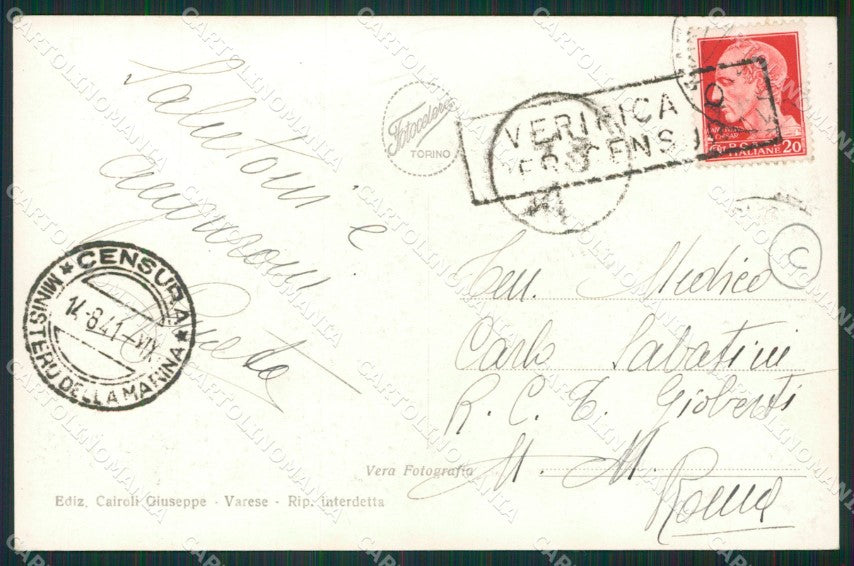 Salutoni e
auguroni
Fotocelere
TORINO
VERIFICA
PER CENSURA
POSTE ITALIANE 20
CENSURA
MINISTERO DELLA MARINA
14.8.41-XIX
Ten. Medico
Carlo Sabatini
R. C. T. Gioberti
M. M.
Roma
Vera Fotografia
Ediz. Cairoli Giuseppe - Varese - Rip. interdetta
CARTOLINOMANIA